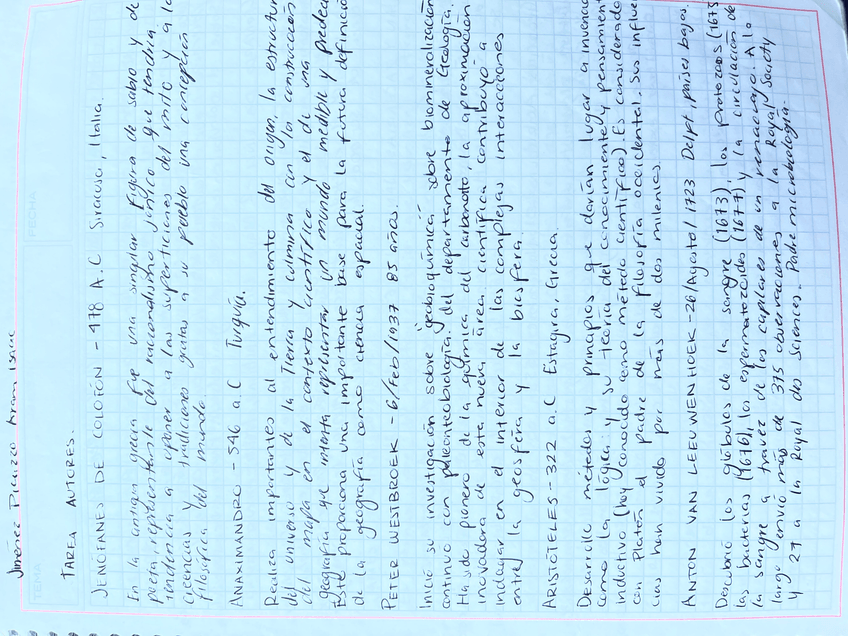 Jiménez Picazzo Aram Isaac
TEMA
FECHA
TAREA AUTORES.
JENÓFANES DE COLOFÓN - 478 A.C Siracusa, Italia.
En la antigua grecia fue una singular figura de sabio y de
poeta, representante del racionalismo jónico que tendría
tendencia a oponer a las supersticiones del mito y a la
creencias y tradiciones gratas a su pueblo una concepción
filosófica del mundo.
ANAXIMANDRO - 546 a.C Turquía.
Realiza importantes al entendimiento del origen, la estructur
del universo y de la Tierra y culmina con la construcción
del mapa en el contexto científico y el de una
geografía que intenta representar un mundo medible y predec
Este proporciona una importante base para la futura definició
de la geografía como ciencia espacial.
PETER WESTBROEK - 6/Feb/1937 85 años.
Inició su investigación sobre geobioquímica sobre biomineralización
continuo con paleontobiología del departamento de Geología.
Ha sido pionero de la química del carbonato, la aproximación
inovadora de esta nueva área científica contribuyó a
indagar en el interior de las complejas interacciones
entre la geosfera y la biosfera.
ARISTÓTELES - 322 a.C Estagira, Grecia.
Desarrolle métodos y principios que darían lugar a invenci
como la lógica y su teoría del conocimiento y pensamient
inductivo (hoy conocido como método científico). Es considerado
con Platón el padre de la filosofía occidental. Sus influe
cias han vivido por más de dos milenios.
ANTON VAN LEEUWENHOEK - 26/Agosto/1723 Delft, países bajos.
Descubrió los glóbulos de la sangre (1673), los protozoos (1675
las bacterias (1676), los espermatozoides (1677) y la circulación de
la sangre a travez de los capilares de un renacuajo. A lo
largo envió más de 375 observaciones a la Royal Society
y 27 a la Royal des Sciences. Padre microbiología.